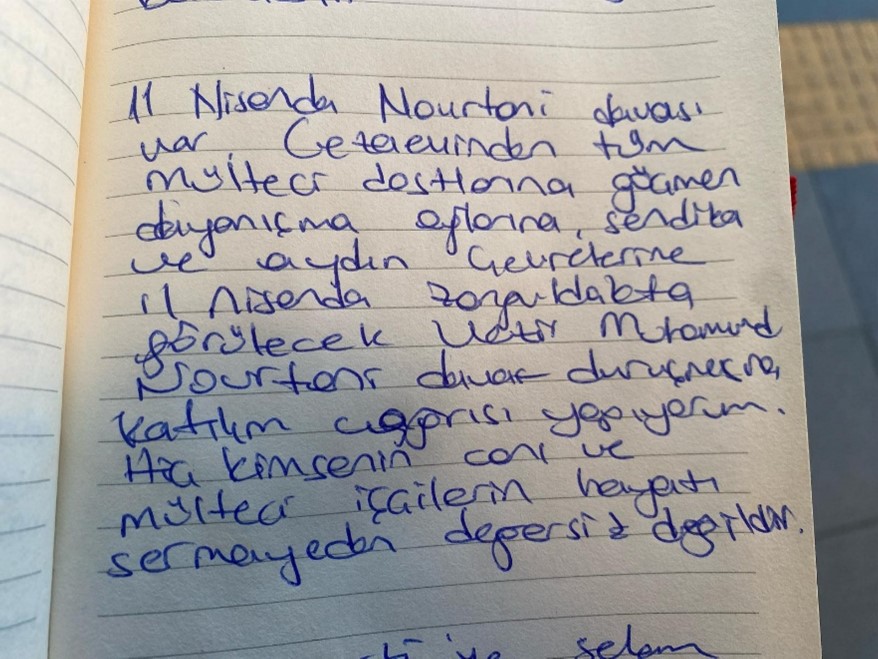 11 Nisanda Nourtani davası
var. Cezaevinden tüm
mülteci dostlarına göçmen
dayanışma ağlarına, sendika
ve aydın çevrelerine
11 Nisanda Zonguldakta
görülecek Vezir Mohamad
Nourtani davası duruşmasına,
katılım çağrısı yapıyorum.
Hiç kimsenin canı ve
mülteci işçilerin hayatı
sermayeden değersiz değildir.
selam